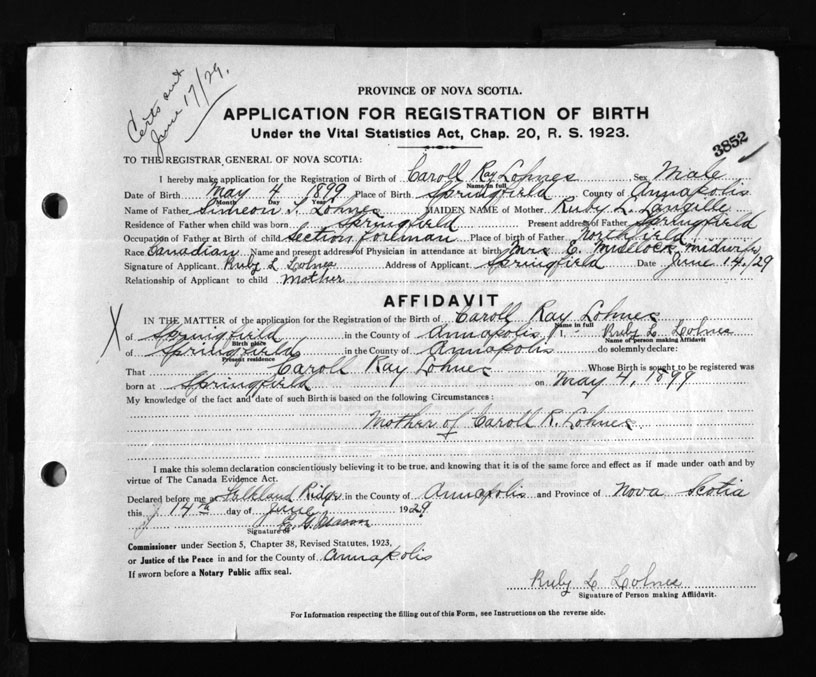 Certs sent
June 17/29.
PROVINCE OF NOVA SCOTIA.
APPLICATION FOR REGISTRATION OF BIRTH
Under the Vital Statistics Act, Chap. 20, R. S. 1923.
3852
TO THE REGISTRAR GENERAL OF NOVA SCOTIA:
I hereby make application for the Registration of Birth of Caroll Ray Lohnes Sex Male
Name in full
Date of Birth May 4 1899 Place of Birth Springfield County of Annapolis
Month Day Year
Name of Father Simeon S. Lohnes MAIDEN NAME of Mother Ruby L. Langille
Residence of Father when child was born Springfield Present address of Father Springfield
Occupation of Father at Birth of child Section Foreman Place of birth of Father Northfield
Race Canadian Name and present address of Physician in attendance at birth Mrs C. midwife
Signature of Applicant Ruby L Lohnes Address of Applicant Springfield Date June 14./29
Relationship of Applicant to child Mother
AFFIDAVIT
IN THE MATTER of the application for the Registration of Birth of Caroll Ray Lohnes
Name in full
X of Springfield in the County of Annapolis I, Ruby L Lohnes
Birth place Name of person making Affidavit
of Springfield in the County of Annapolis do solemnly declare:
Present residence
That Caroll Ray Lohnes Whose Birth is sought to be registered was
born at Springfield on May 4, 1899
My knowledge of the fact and date of such Birth is based on the following Circumstances:
Mother of Caroll R. Lohnes
I make this solemn declaration conscientiously believing it to be true, and knowing that it is of the same force and effect as if made under oath and by
virtue of The Canada Evidence Act.
Declared before me at Falkland Ridge in the County of Annapolis and Province of Nova Scotia
this 14th day of June 1929
G. Mason
Signature of
Commissioner under Section 5, Chapter 38, Revised Statutes, 1923,
or Justice of the Peace in and for the County of Annapolis
If sworn before a Notary Public affix seal.
Ruby L Lohnes
Signature of Person making Affidavit.
For Information respecting the filling out of this Form, see Instructions on the reverse side.